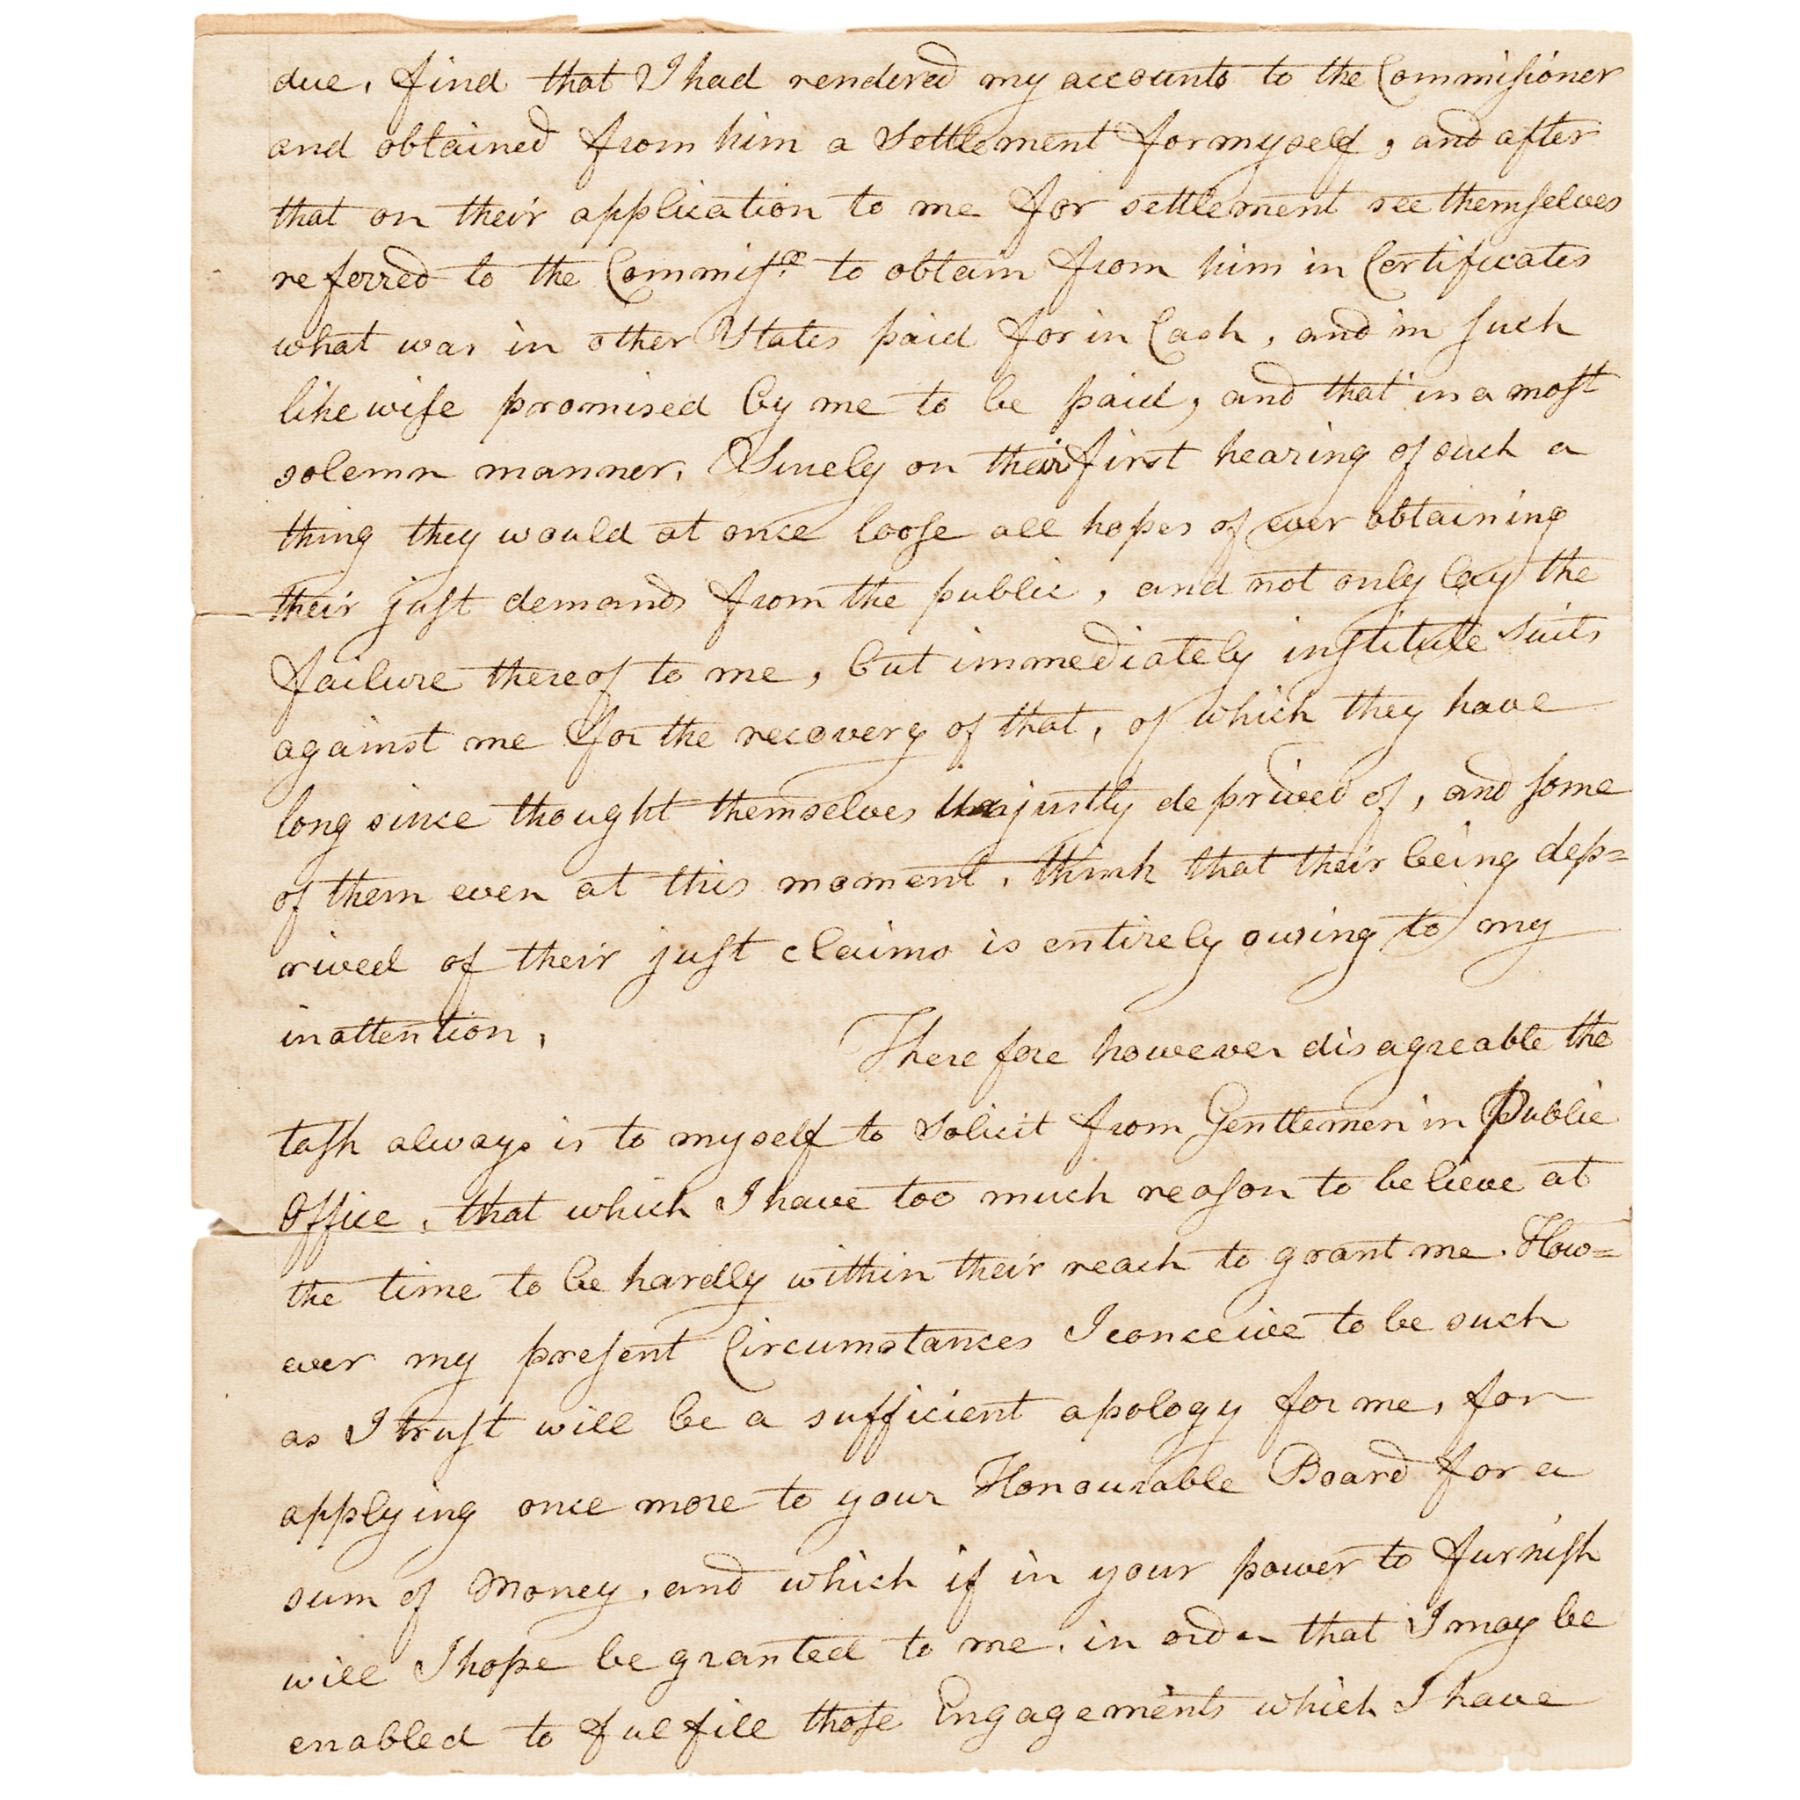 due, find that I had rendered my accounts to the Commissioner
and obtained from him a Settlement for myself, and after
that on their application to me for settlement see themselves
referred to the Commissr. to obtain from him in Certificates
what was in other States paid for in Cash, and in such
likewise promised by me to be paid, and that in a most
solemn manner. Surely on their first hearing of such a
thing they would at once loose all hopes of ever obtaining
their just demands from the public, and not only lay the
failure thereof to me, but immediately institute Suits
against me for the recovery of that, of which they have
long since thought themselves unjustly deprived of, and some
of them even at this moment, think that their being dep=
rived of their just claims is entirely owing to my
inattention,
Therefore however disagreable the
task always is to myself to Solicit from Gentlemen in Public
Office, that which I have too much reason to believe at
the time to be hardly within their reach to grant me. How=
ever my present Circumstances I conceive to be such
as I trust will be a sufficient apology for me, for
applying once more to your Honourable Board for a
sum of Money, and which if in your power to furnish
will I hope be granted to me. in order that I may be
enabled to fulfill those Engagements which I have